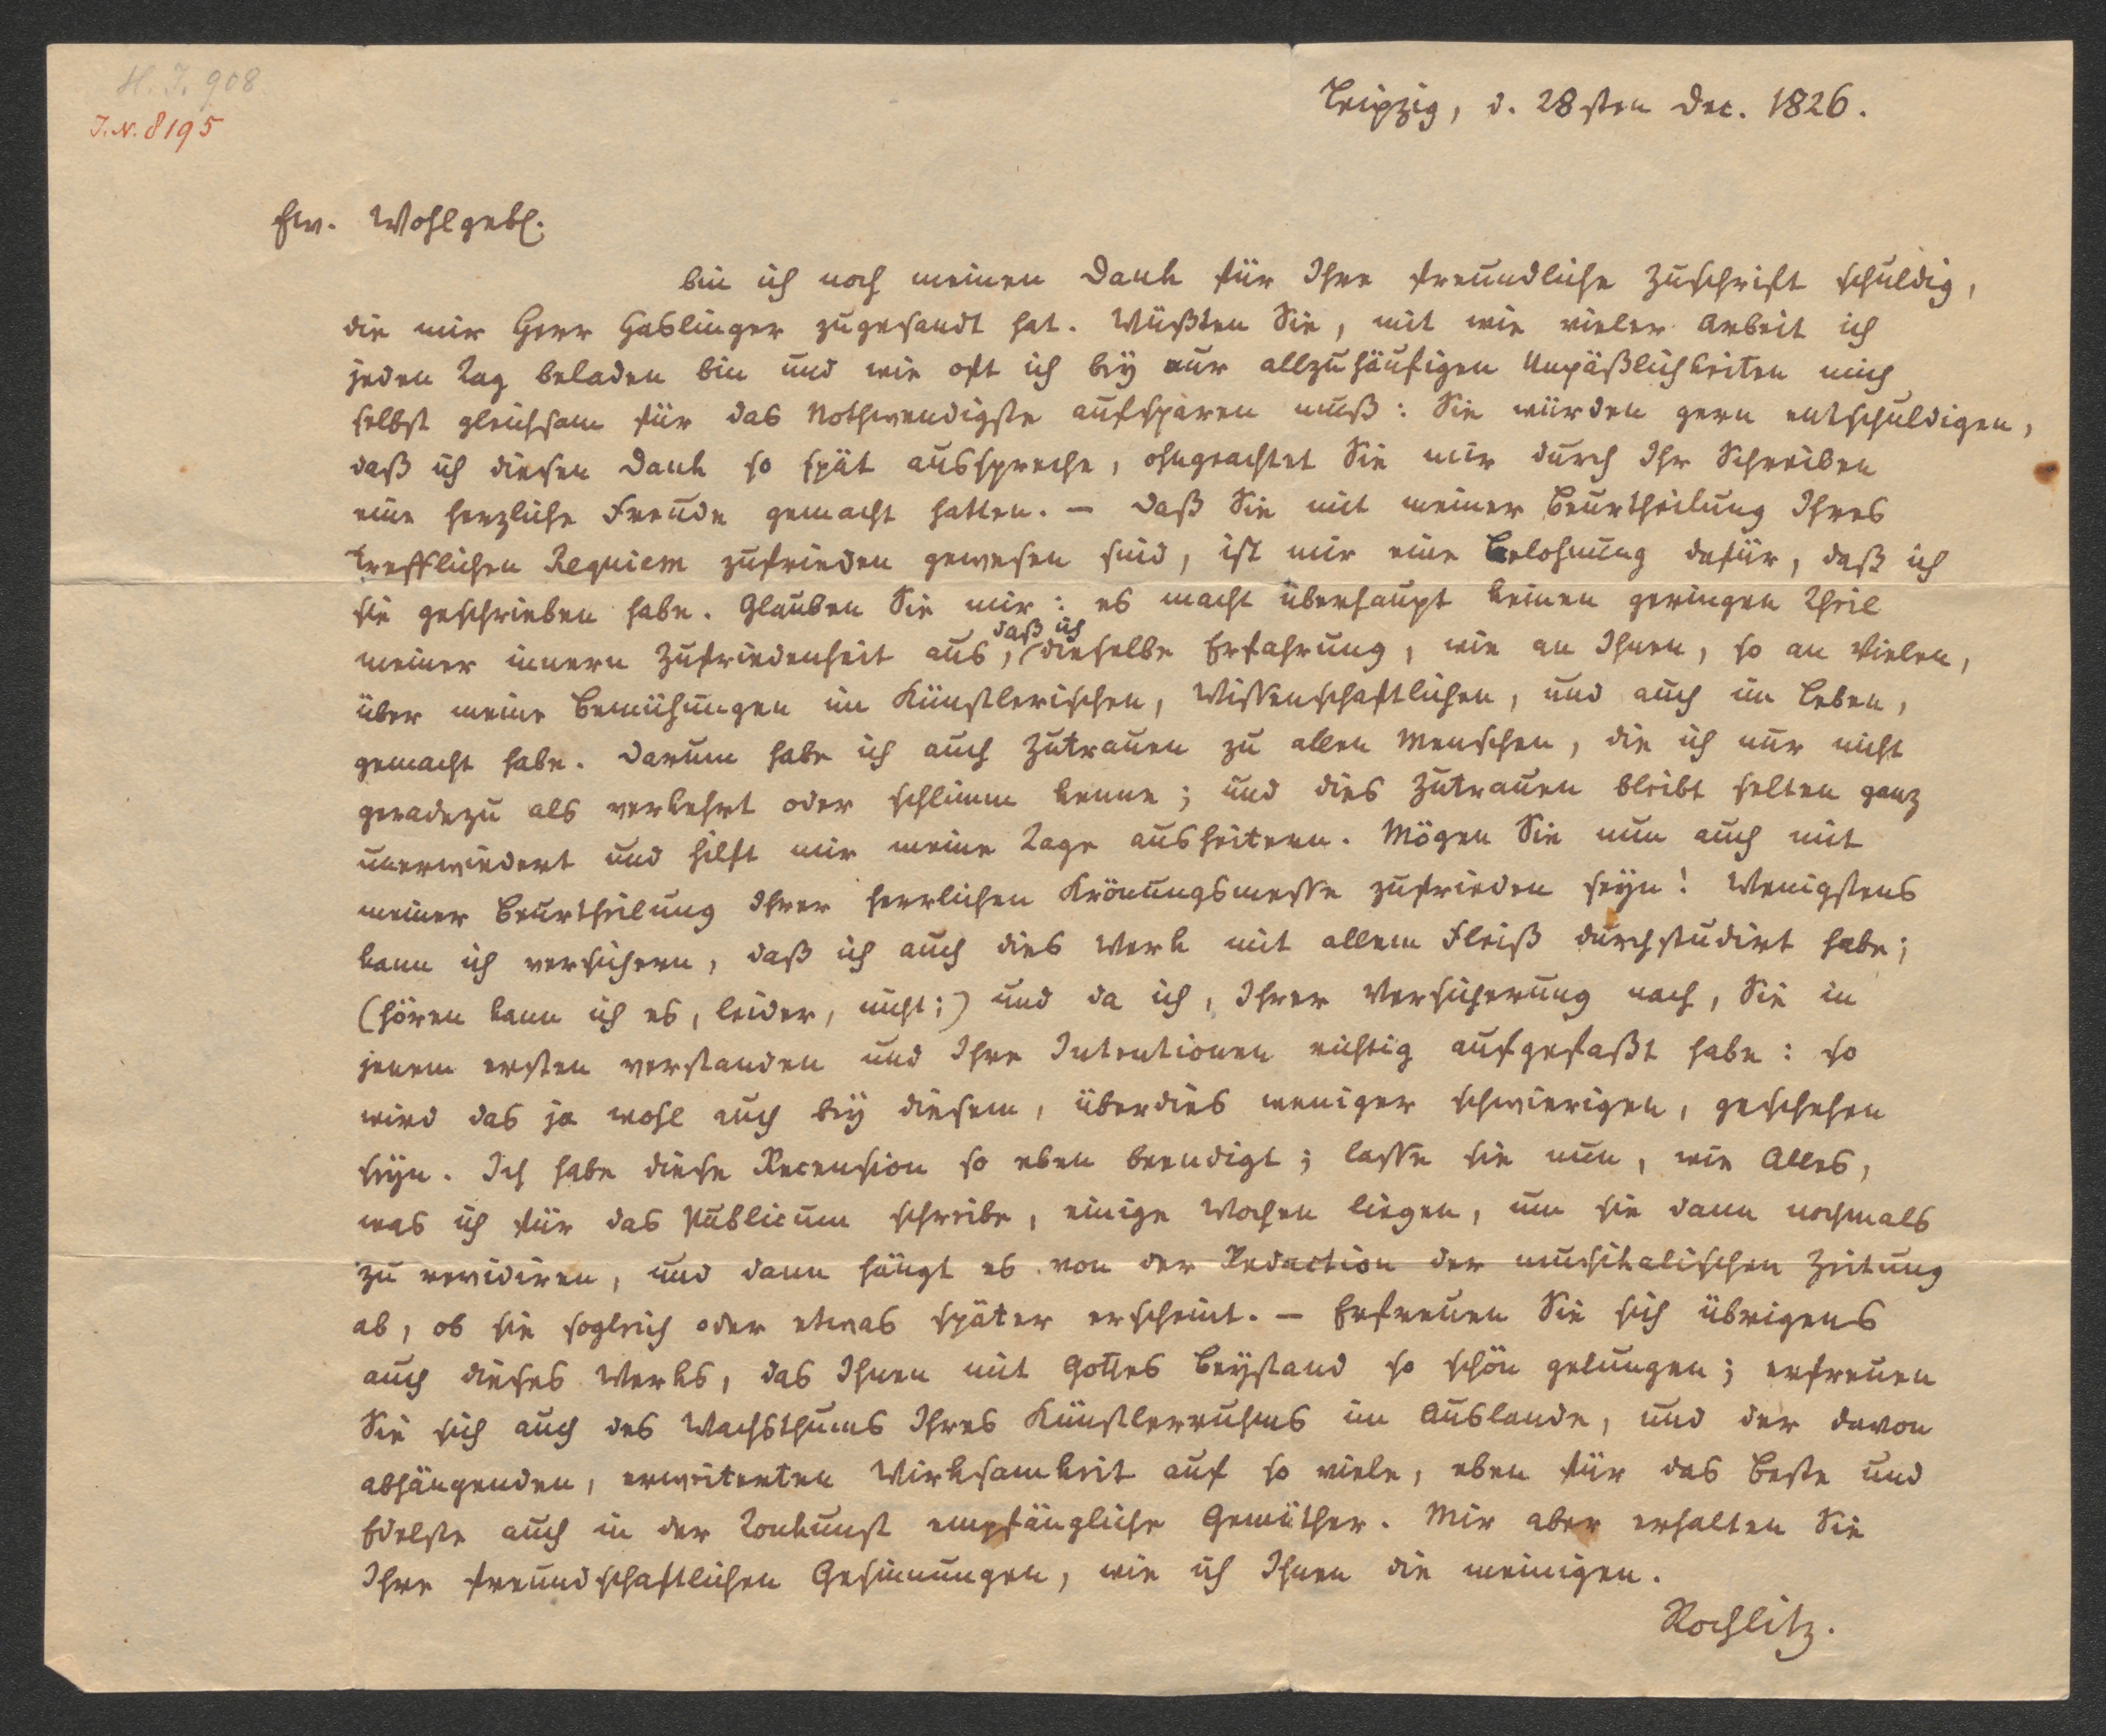 H. I. 908
I. N. 8195
Leipzig, d. 28sten Dec. 1826.
Ew. Wohlgeb.
bin ich noch meinen Dank für Ihre freundliche Zuschrift schuldig,
die mir Herr Haslinger zugesandt hat. Wüßten Sie, mit wie vieler Arbeit ich
jeden Tag beladen bin und wie oft ich bey nur allzuhäufigen Unpäßlichkeiten mich
selbst gleichsam für das Nothwendigste aufsparen muß: Sie würden gern entschuldigen,
daß ich diesen Dank so spät ausspreche, ohngeachtet Sie mir durch Ihr Schreiben
eine herzliche Freude gemacht hatten. – Daß Sie mit meiner Beurtheilung Ihres
trefflichen Requiem zufrieden gewesen sind, ist mir eine Belohnung dafür, daß ich
sie geschrieben habe. Glauben Sie mir: es macht überhaupt keinen geringen Theil
meiner innern Zufriedenheit aus, daß ich dieselbe Erfahrung, wie an Ihnen, so an Vielen,
über meine Bemühungen im Künstlerischen, Wissenschaftlichen, und auch im Leben,
gemacht habe. Darum habe ich auch Zutrauen zu allen Menschen, die ich nur nicht
geradezu als verkehrt oder schlimm kenne; und dies Zutrauen bleibt selten ganz
unerwiedert und hilft mir meine Tage ausheitern. Mögen Sie nun auch mit
meiner Beurtheilung Ihrer herrlichen Krönungsmesse zufrieden seyn! Wenigstens
kann ich versichern, daß ich auch dies Werk mit allem Fleiß durchstudirt habe;
(hören kann ich es, leider, nicht;) und da ich, Ihrer Versicherung nach, Sie in
jenem ersten verstanden und Ihre Intentionen richtig aufgefaßt habe: so
wird das ja wohl auch bey diesem, überdies weniger schwierigen, geschehen
seyn. Ich habe diese Recension so eben beendigt; lasse sie nun, wie Alles,
was ich für das Publicum schreibe, einige Wochen liegen, um sie dann nochmals
zu revidiren, und dann hängt es von der Redaction der musikalischen Zeitung
ab, ob sie sogleich oder etwas später erscheint. – Erfreuen Sie sich übrigens
auch dieses Werks, das Ihnen mit Gottes Beystand so schön gelungen; erfreuen
Sie sich auch des Wachsthums Ihres Künstlerruhms im Auslande, und der davon
abhängenden, erweiterten Wirksamkeit auf so viele, eben für das Beste und
Edelste auch in der Tonkunst empfängliche Gemüther. Mir aber erhalten Sie
Ihre freundschaftlichen Gesinnungen, wie ich Ihnen die meinigen.
Rochlitz.